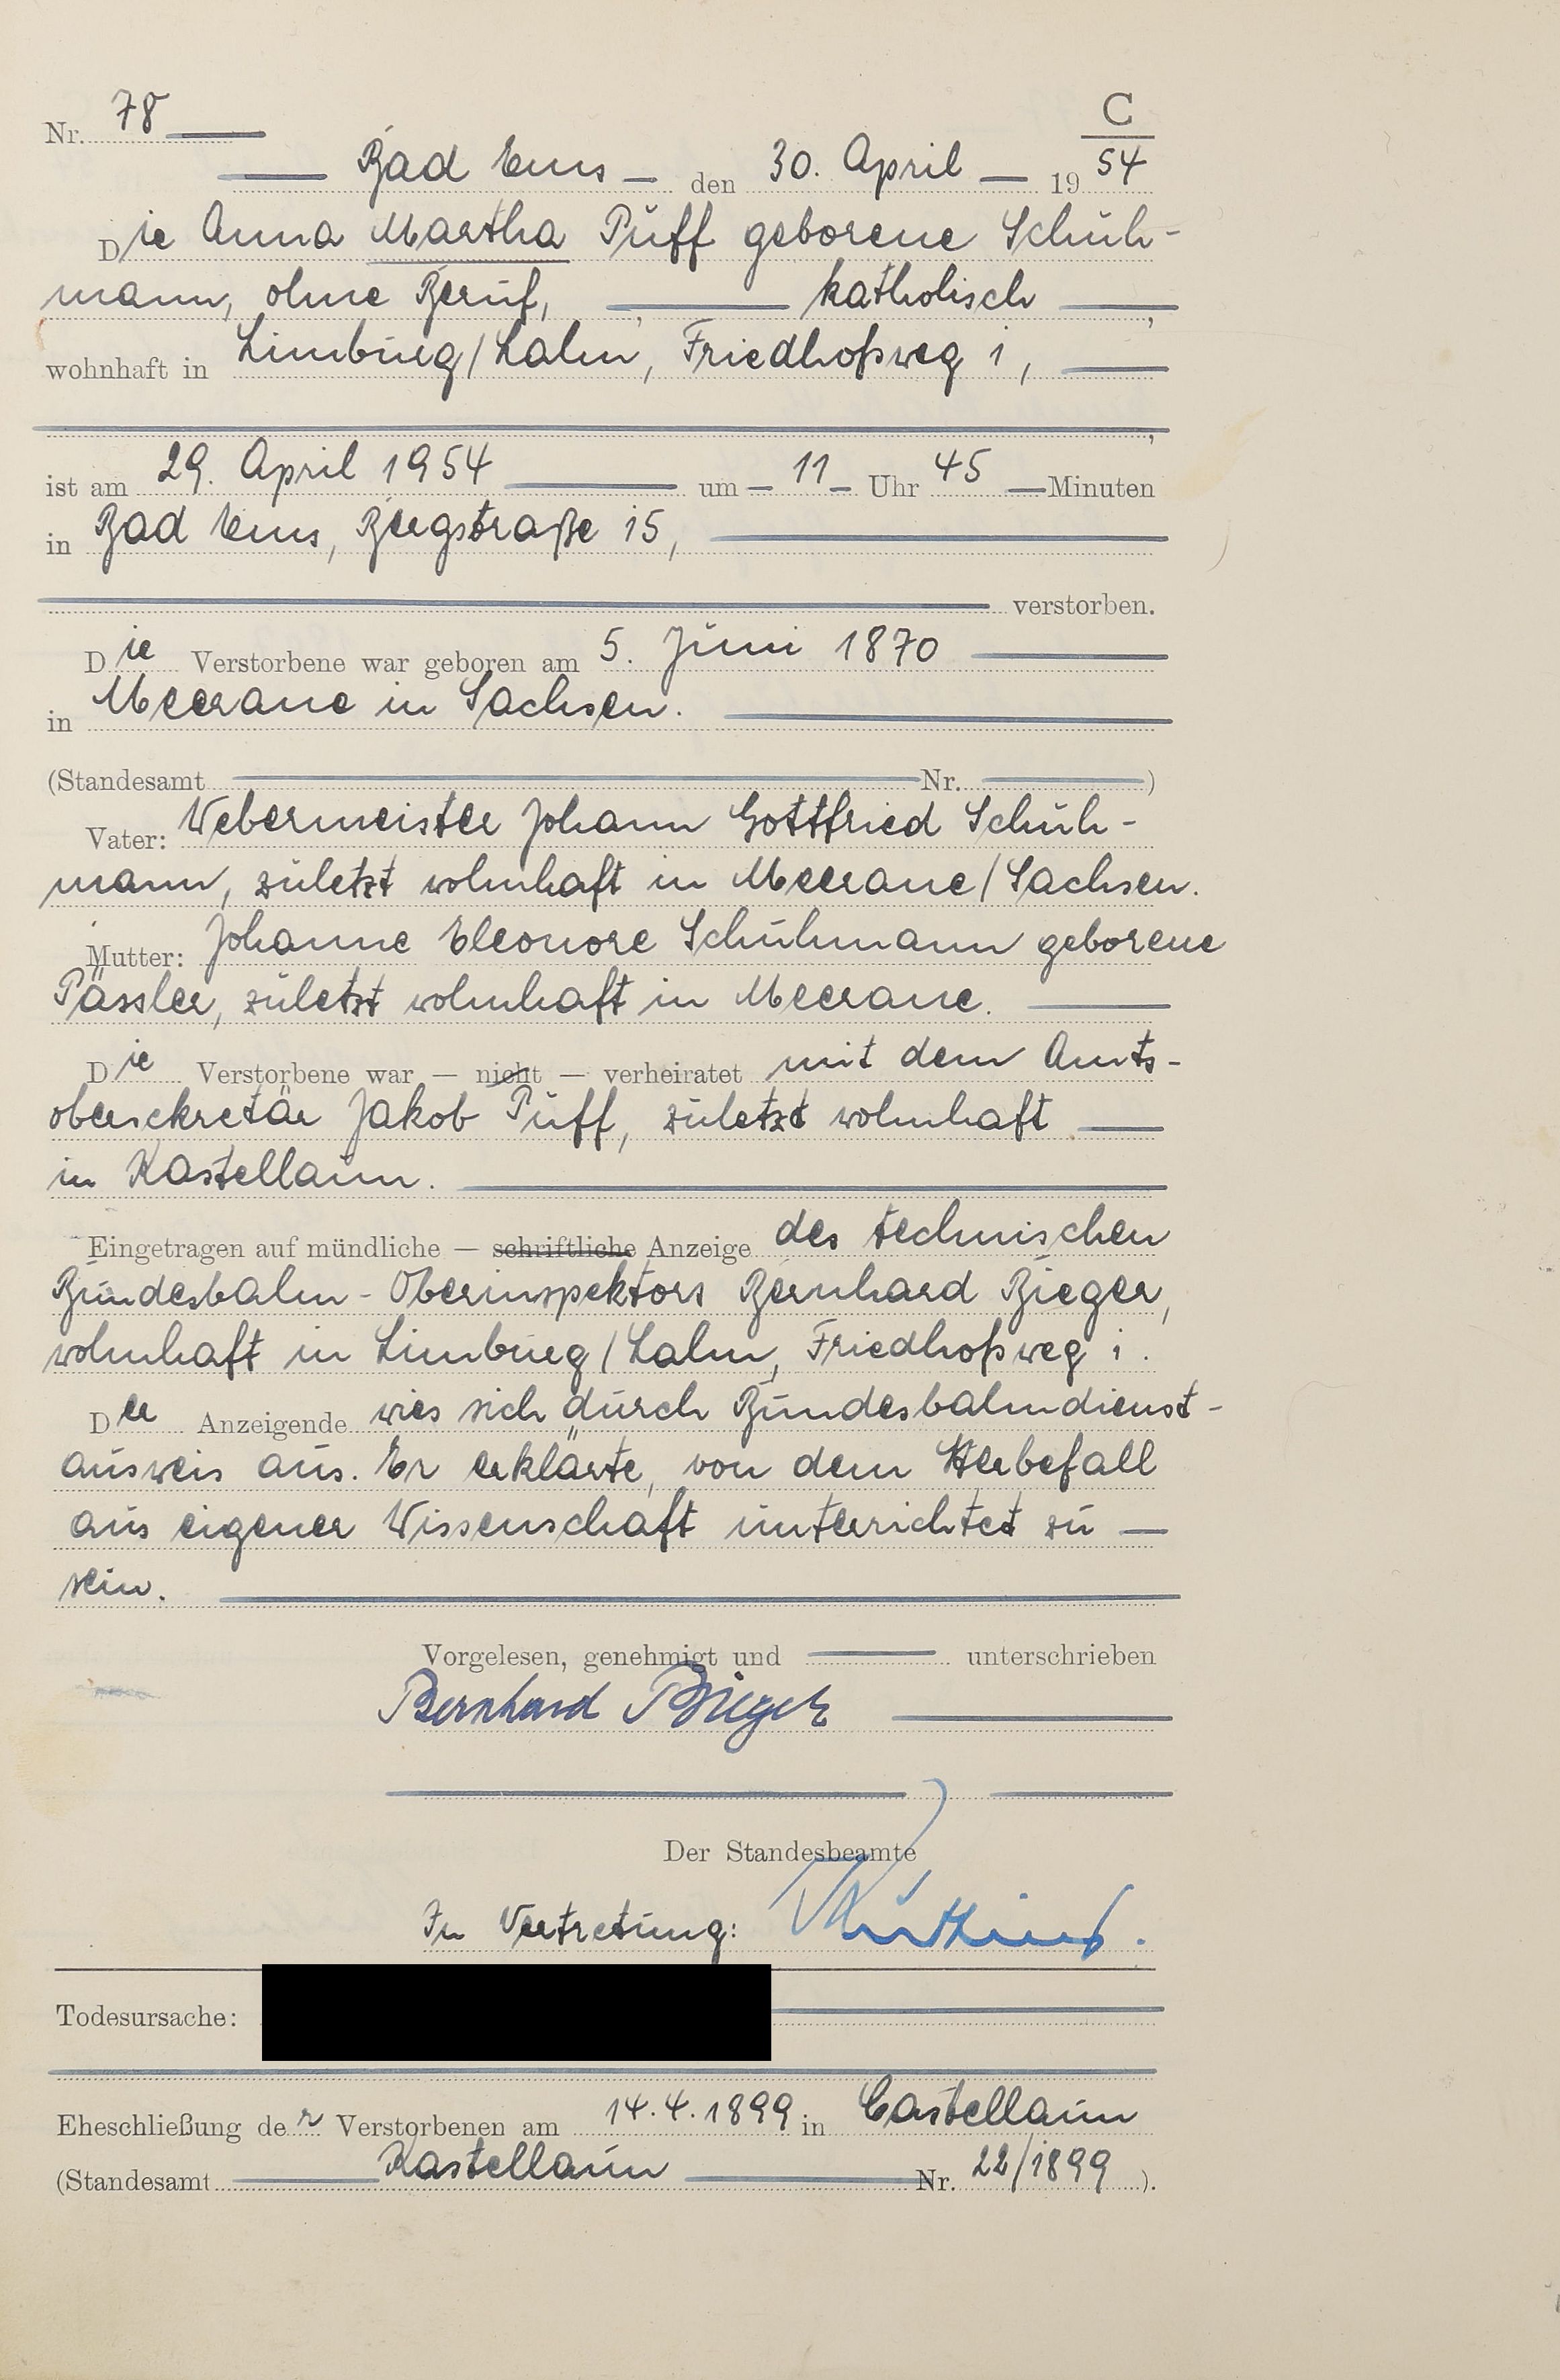 C
Nr. 78
Bad Ems — den 30. April — 1954
Die Anna Martha Puff geborene Schuh-
mann, ohne Beruf, katholisch ,
wohnhaft in Limburg/Lahn, Friedhofsweg 1,
,
ist am 29. April 1954 um — 11 — Uhr 45 — Minuten
in Bad Ems, Bergstraße 15,
verstorben.
Die Verstorbene war geboren am 5. Juni 1870
in Meerane in Sachsen.
(Standesamt Nr. )
Vater: Webermeister Johann Gottfried Schuh-
mann, zuletzt wohnhaft in Meerane/Sachsen.
Mutter: Johanne Eleonore Schuhmann geborene
Pässler, zuletzt wohnhaft in Meerane.
Die Verstorbene war — nicht — verheiratet mit dem Amts-
obersekretär Jakob Puff, zuletzt wohnhaft
in Kastellaun.
Eingetragen auf mündliche — schriftliche Anzeige des technischen
Bundesbahn-Oberinspektors Bernhard Bieger,
wohnhaft in Limburg/Lahn, Friedhofsweg 1.
Der Anzeigende wies sich durch Bundesbahndienst-
ausweis aus. Er erklärte, von dem Sterbefall
aus eigener Wissenschaft unterrichtet zu —
sein.
Vorgelesen, genehmigt und unterschrieben
Bernhard Bieger
Der Standesbeamte
In Vertretung:
Todesursache:
Eheschließung der Verstorbenen am 14.4.1899 in Castellaun
(Standesamt Kastellaun Nr. 22/1899 ).